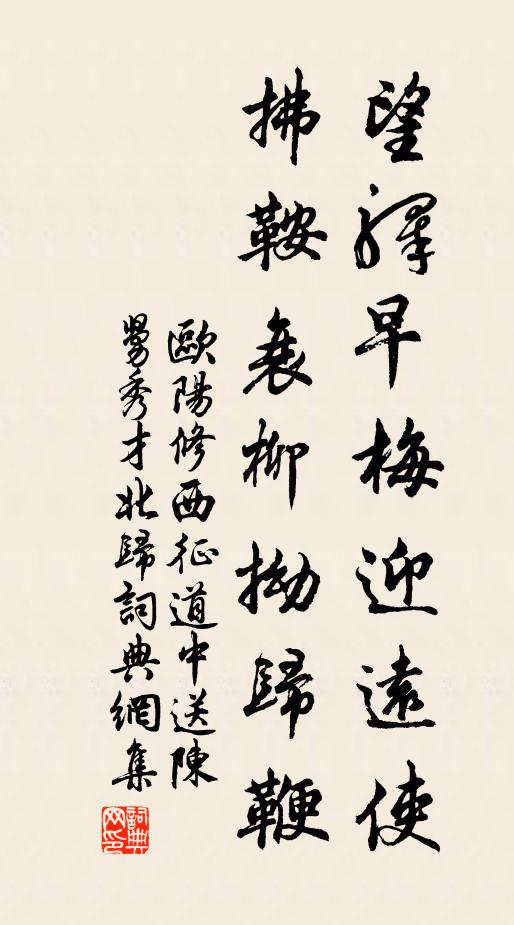 望驛早梅迎遠使
拂鞍衰柳拗歸鞭
歐陽修西征道中送陳
舅秀才北歸詞典網集
詞典网印